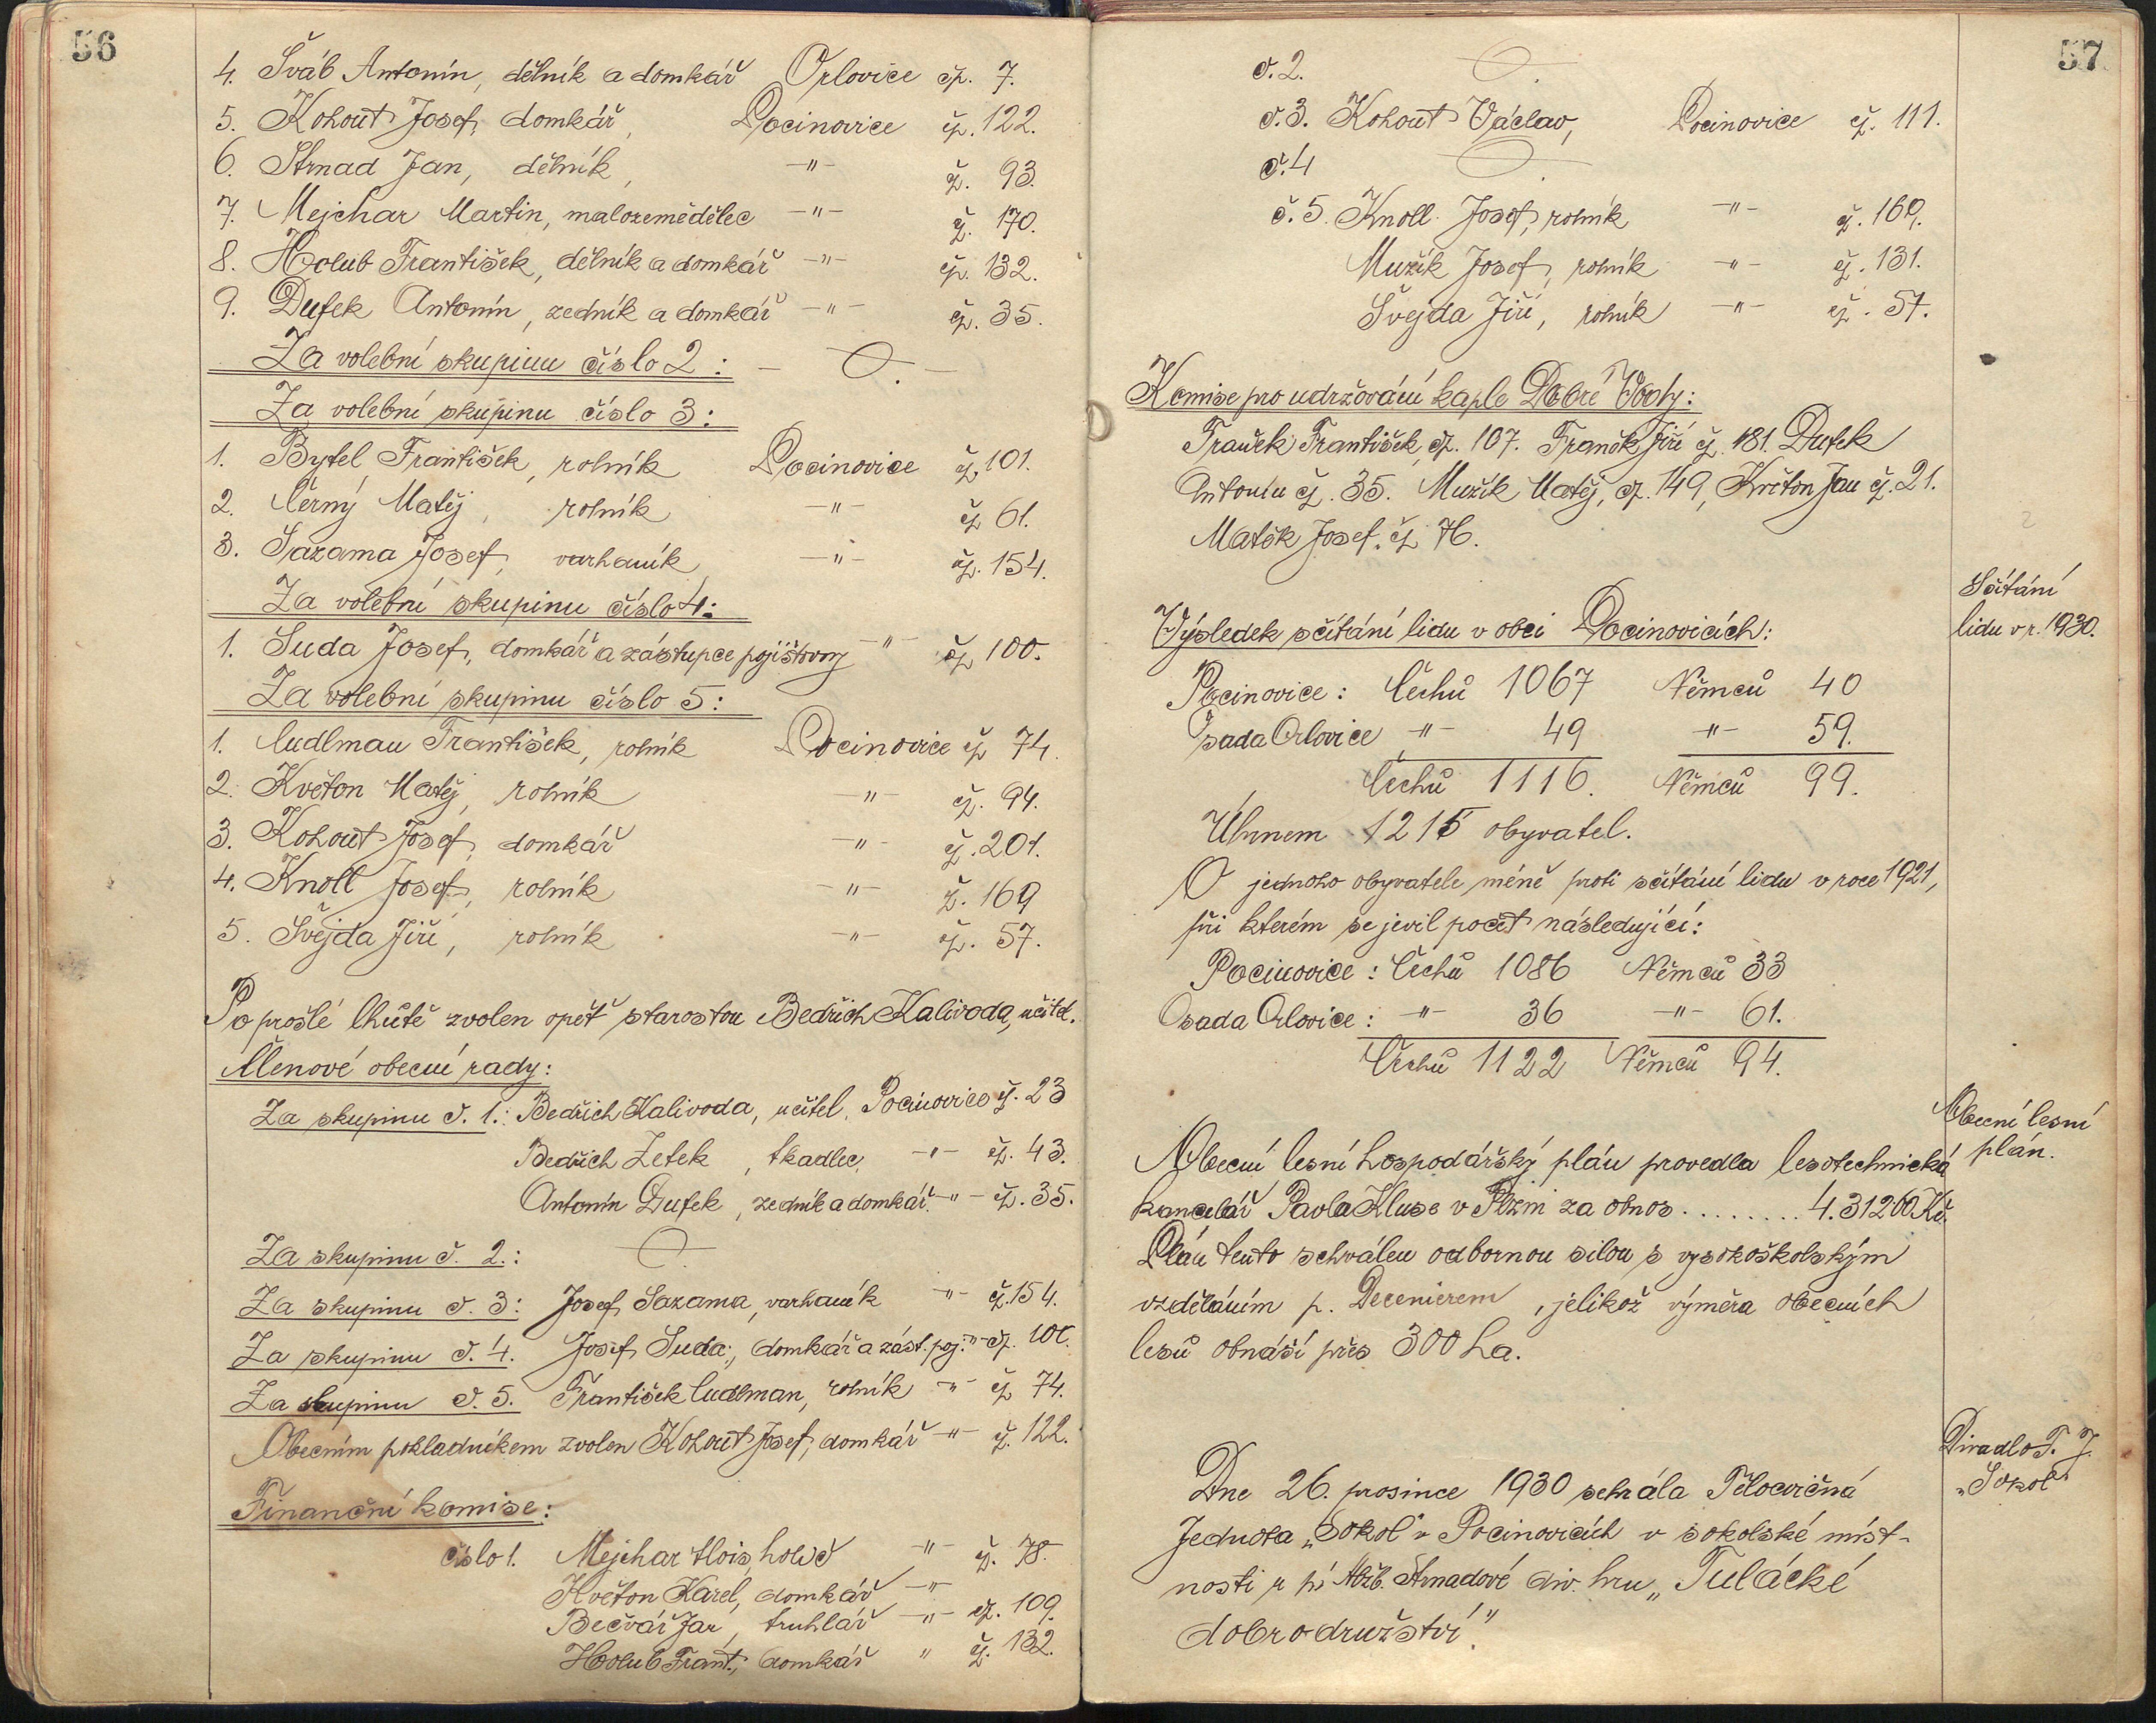 56
4. Šváb Antonín, dělník a domkář Orlovice čp. 7.
5. Kohout Josef, domkář, Pocinovice čp. 122.
6. Strnad Jan, dělník, -"- čp. 93.
7. Mejchar Martin, malozemědělec -"- čp. 170.
8. Holub František, dělník a domkář -"- čp. 132.
9. Dufek Antonín, zedník a domkář -"- čp. 35.
Za volební skupinu číslo 2: — 0. —
Za volební skupinu číslo 3:
1. Bytel František, rolník Pocinovice čp. 101.
2. Černý Matěj, rolník -"- čp. 61.
3. Sazama Josef, varhaník -"- čp. 154.
Za volební skupinu číslo 4:
1. Suda Josef, domkář a zástupce pojišťovny -"- čp. 100.
Za volební skupinu číslo 5:
1. Cudlman František, rolník Pocinovice čp. 74.
2. Květon Matěj, rolník -"- čp. 94.
3. Kohout Josef, domkář -"- čp. 201.
4. Knoll Josef, rolník -"- čp. 169
5. Švejda Jiří, rolník -"- čp. 57.
Po prošlé lhůtě zvolen opět starostou Bedřich Kalivoda, učitel.
Členové obecní rady:
Za skupinu č. 1.: Bedřich Kalivoda, učitel, Pocinovice čp. 23
Bedřich Zetek, tkadlec, -"- čp. 43.
Antonín Dufek, zedník a domkář. -"- čp. 35.
Za skupinu č. 2.: — 0. —
Za skupinu č. 3: Josef Sazama, varhaník -"- čp. 154.
Za skupinu č. 4. Josef Suda, domkář a zást. poj. -"- čp. 100.
Za skupinu č. 5. František Cudlman, rolník -"- čp. 74.
Obecním pokladníkem zvolen Kohout Josef, domkář -"- čp. 122.
Finanční komise:
číslo 1. Mejchar Alois, holič -"- čp. 78.
Květon Karel, domkář -"-
Bečvář Jan, truhlář -"- čp. 109.
Holub Frant., domkář " čp. 132.
57
č. 2. — 0. —
č. 3. Kohout Václav, Pocinovice čp. 111.
č. 4 — 0. —
č. 5. Knoll Josef, rolník -"- čp. 169.
Mužík Josef, rolník -"- čp. 131.
Švejda Jiří, rolník -"- čp. 57.
Komise pro udržování kaple Dobré Vody:
Franěk František, čp. 107. Franěk Jiří čp. 181. Dufek
Antonín čp. 35. Mužík Matěj, čp. 149, Květon Jan čp. 21.
Matěk Josef. čp. 76.
Sčítání
lidu v r. 1930.
Výsledek sčítání lidu v obci Pocinovicích:
Pocinovice: Čechů 1067 Němců 40
Osada Orlovice -"- 49 -"- 59.
Čechů 1116. Němců 99.
Úhrnem 1215 obyvatel.
O jednoho obyvatele méně proti sčítání lidu v roce 1921,
při kterém se jevil počet následující:
Pocinovice: Čechů 1086 Němců 33
Osada Orlovice: -"- 36 -"- 61.
Čechů 1122 Němců 94.
Obecní lesní
plán.
Obecní lesní hospodářský plán provedla lesotechnická
kancelář Pavla Kluse v Plzni za obnos ........ 4.31260 Kč.
Plán tento schválen odbornou silou s vysokoškolským
vzděláním p. Decenierem, jelikož výměra obecních
lesů obnáší přes 300 ha.
Divadlo T. J.
"Sokol"
Dne 26. prosince 1930 sehrála Tělocvičná
Jednota „Sokol" v Pocinovicích v sokolské míst-
nosti u pí Alžb. Strnadové div. hru „Tulácké
dobrodružství."